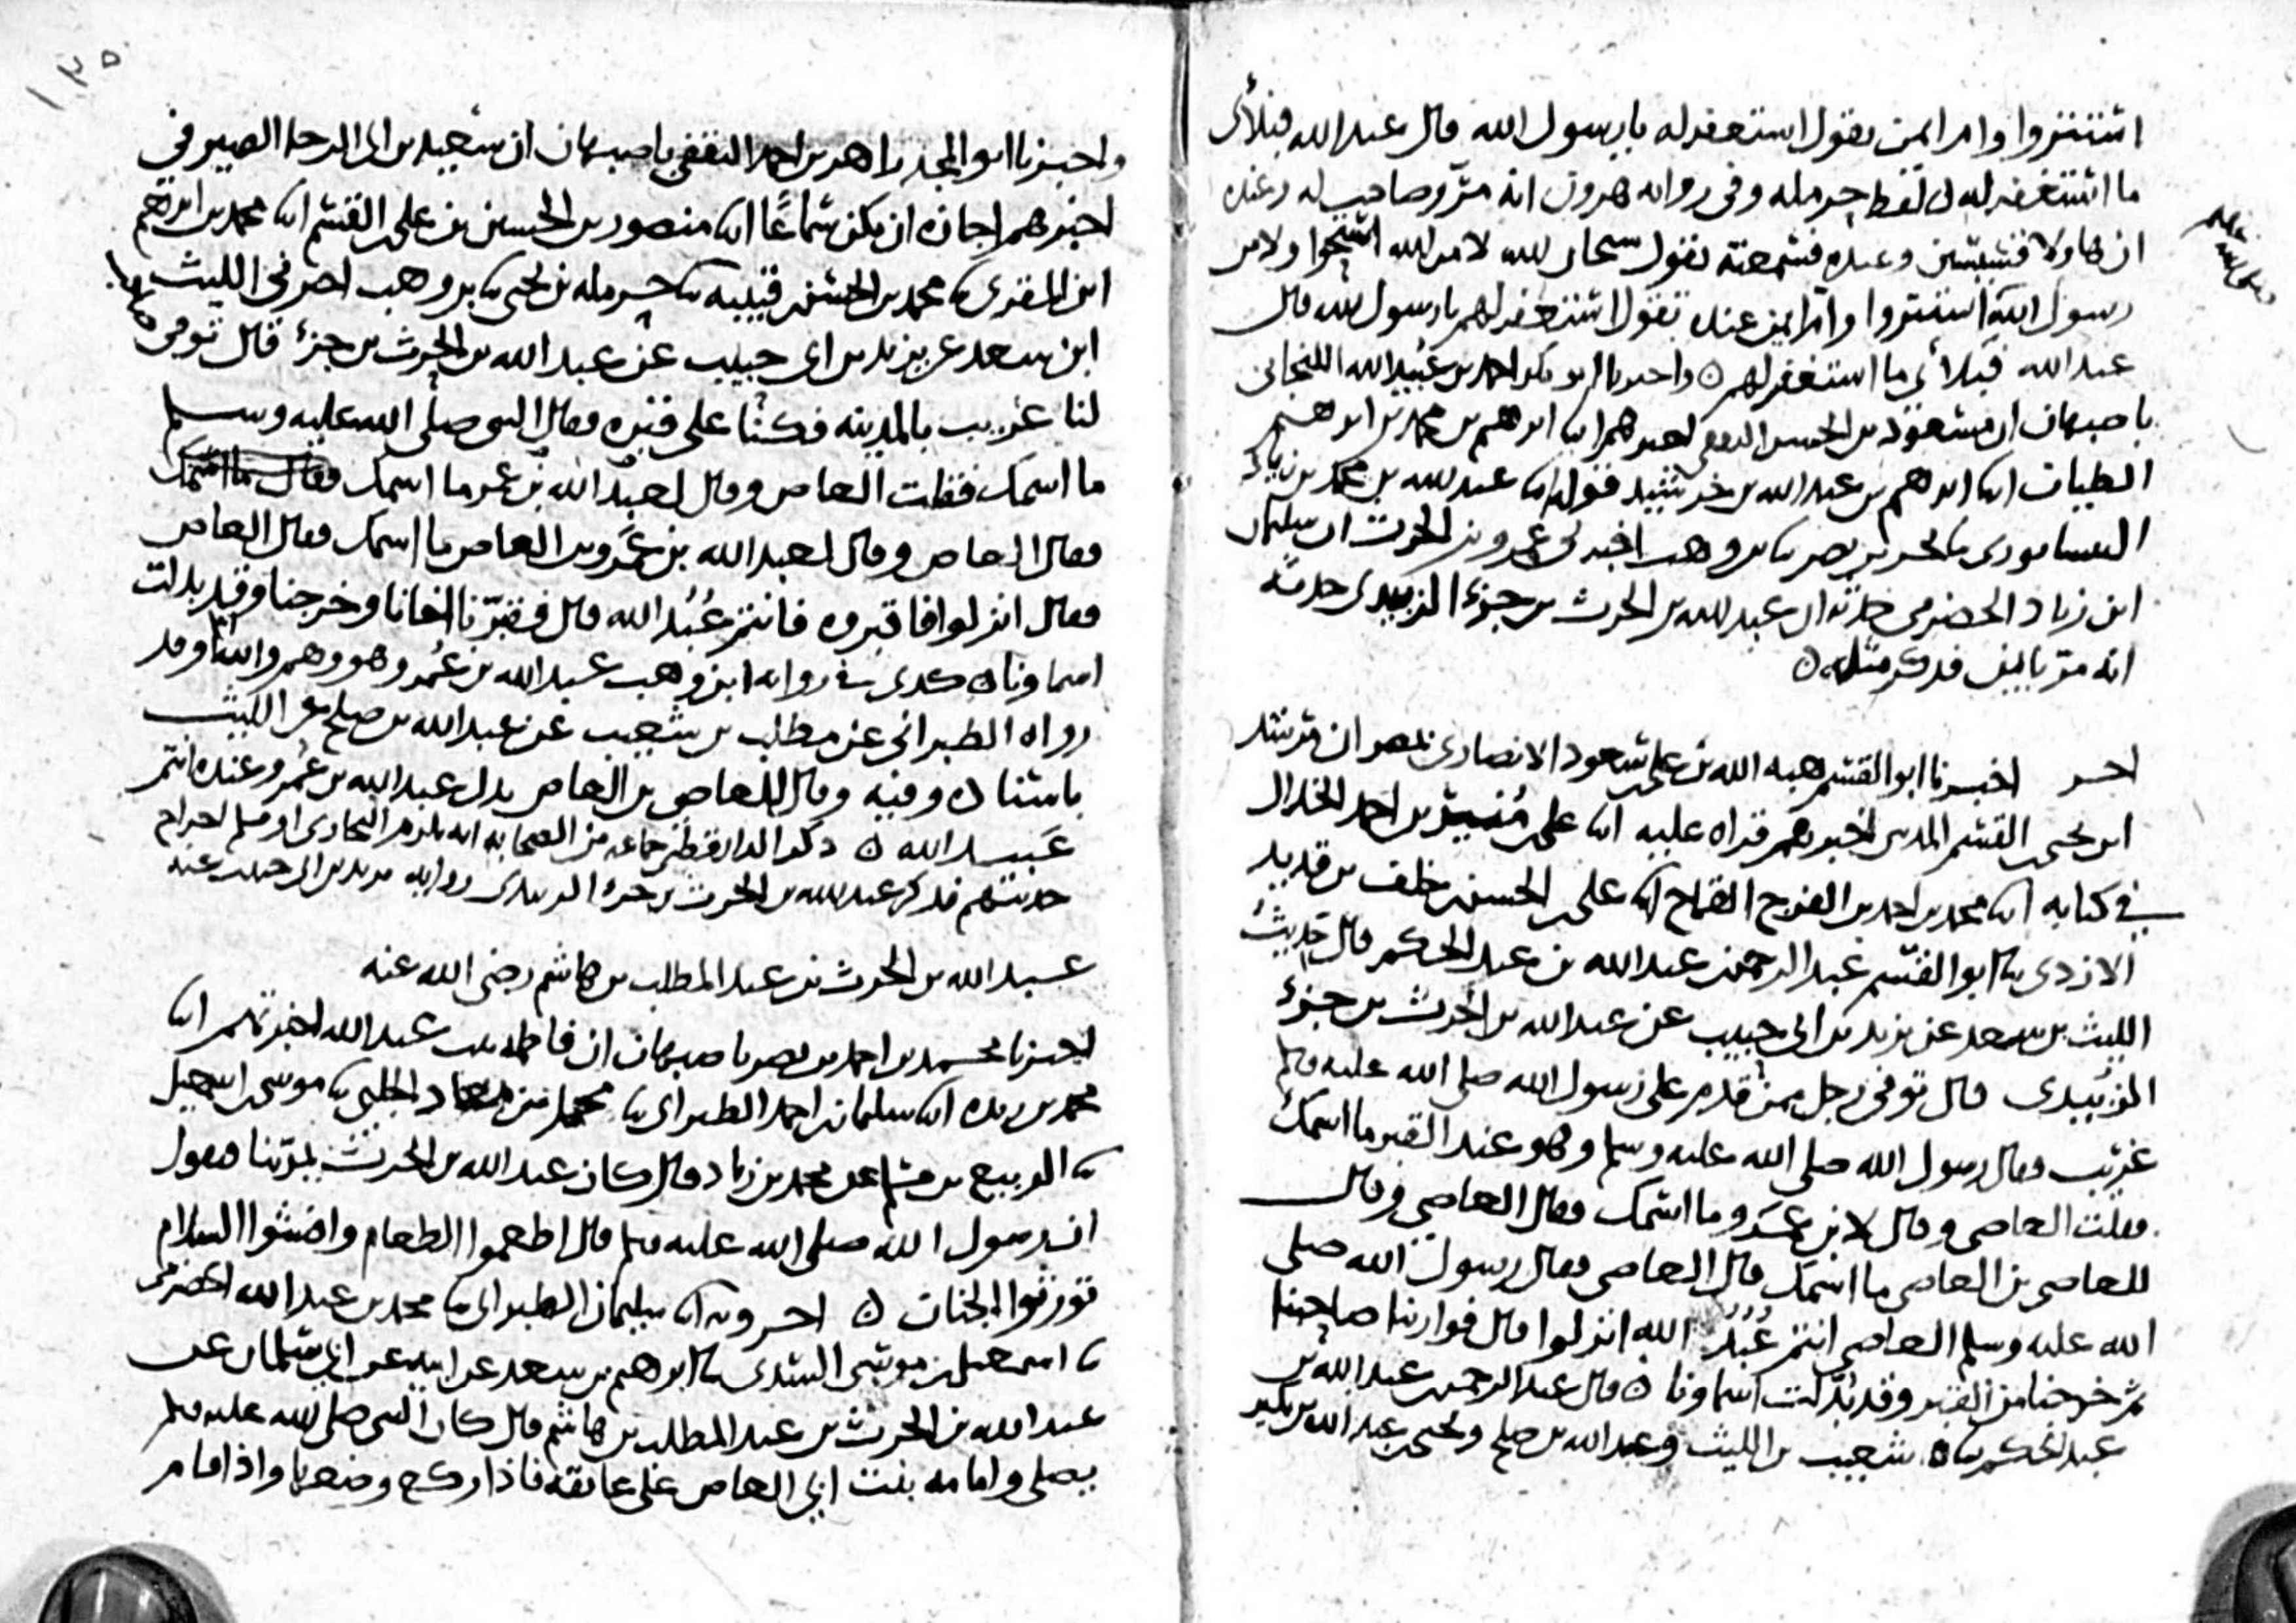 استتروا وام ايمن تقول استغفر له يا رسول الله قال عبد الله فبلأى
ما استغفر له لفظ حرمله وفي روايه هرون انه مر وصاحب له وعنده
وعنده فسمعته تقول سبحان الله لا من الله استحيوا ولا من
رسول الله استتروا وام ايمن عنده تقول استغفر لهم يا رسول الله قال
عبد الله فبلأى ما استغفر لهم ٥ واخبرنا ابو بكر احمد بن عبيد الله اللنجاني
باصبهان ان مسعود بن الحسن الثقفي اخبرهم ابنا ابرهيم بن محمد بن ابرهيم
الطيان ابنا ابرهيم بن عبد الله بن خرشيد قوله ابنا عبد الله بن محمد بن زياد
النيسابوري نا بحر بن نصر نا بن وهب اخبرني عمرو بن الحرث ان سليمان
ابن زياد الحضرمي حدثه ان عبد الله بن الحرث بن جزء الزبيدي حدثه
انه مر بايمن فذكر مثله ٥
اخر اخبرنا ابو القسم هبه الله بن علي بن سعود الانصاري بمصر ان مرشد
ابن يحيى بن القسم المديني اخبرهم قراه عليه ابنا علي بن منير بن احمد الخلال
في كتابه ابنا محمد بن احمد بن الفرج القماح ابنا علي بن الحسن بن خلف بن قديد
الازدي نا ابو القسم عبد الرحمن بن عبد الله بن عبد الحكم قال حديث
الليث بن سعد عن يزيد بن ابي حبيب عن عبد الله بن الحرث بن جزء
الزبيدي قال توفي رجل ممن قدم على رسول الله صلى الله عليه وسلم
غريب فقال رسول الله صلى الله عليه وسلم وهو عند القبر ما اسمك
فقلت العاصي وقال لابن عمرو ما اسمك فقال العاصي وقال
للعاصي بن العاصي ما اسمك قال العاصي فقال رسول الله صلى
الله عليه وسلم العاصي انتم عُبُدُ الله انزلوا قال فوارينا صاحبنا
ثم خرجنا من القبر وقد بُدّلت اسماونا ٥ قال عبد الرحمن بن عبد الله بن
عبد الحكم نا ه شعيب بن الليث وعبد الله بن صلح ويحيى بن عبد الله بن بكير
١٣٥
واخبرنا ابو المجد زاهر بن احمد الثقفي باصبهان ان سعيد بن ابي الرجا الصيرفي
اخبرهم اجازه ان لم يكن سماعًا ابنا منصور بن الحسين بن علي بن القسم ابنا محمد بن ابرهيم
ابن المقرئ نا محمد بن الحسن بن قتيبه نا حرمله بن يحيى نا بن وهب اخبرني الليث
ابن سعد عن يزيد بن ابي حبيب عن عبد الله بن الحرث بن جزء قال توفي
لنا غريب بالمدينه فكنا على قبره فقال النبي صلى الله عليه وسلم
ما اسمك فقلت العاص وقال لعبد الله بن عمر ما اسمك فقال ما اسمك
فقال العاص وقال لعبد الله بن عمرو بن العاص ما اسمك فقال العاص
فقال انزلوا فاقبروه فانتم عُبُد الله قال فقبرنا اخانا وخرجنا وقد بدلت
اسماونا ٥ كذى في روايه ابن وهب عبد الله بن عمر وهو وهم وقد
رواه الطبراني عن مطلب بن شعيب عن عبد الله بن صلح عن الليث
باسناده وفيه وقال للعاص بن العاص بدل عبد الله بن عمرو وعنده انتم
عبيد الله ٥ ذكر الدارقطني جماعه من الصحابه انه يلزم البخاري او مسلم اخراج
حديثهم فذكر عبد الله بن الحرث بن جزء الزبيدي روايه يزيد بن ابي حبيب عنه
عبد الله بن الحرث بن عبد المطلب بن هاشم رضى الله عنه
اخبرنا محمد بن احمد بن نصر باصبهان ان فاطمه بنت عبد الله اخبرتهم ابنا
محمد بن ريذه ابنا سليمان بن احمد الطبراني نا محمد بن معاذ الحلبي نا موسى بن اسمعيل
نا الربيع بن مسلم عن محمد بن زياد قال كان عبد الله بن الحرث يمر بنا فيقول
ان رسول الله صلى الله عليه وسلم قال اطعموا الطعام وافشوا السلام
تورثوا الجنان ٥ اخر وبه ابنا سليمان الطبراني نا محمد بن عبد الله الحضرمي
نا اسمعيل بن موسى السدي نا ابرهيم بن سعد عن ابيه عن ابي سلمان عن
عبد الله بن الحرث بن عبد المطلب بن هاشم قال كان النبي صلى الله عليه وسلم
يصلي وامامه بنت ابي العاص على عاتقه فاذا ركع وضعها واذا قام